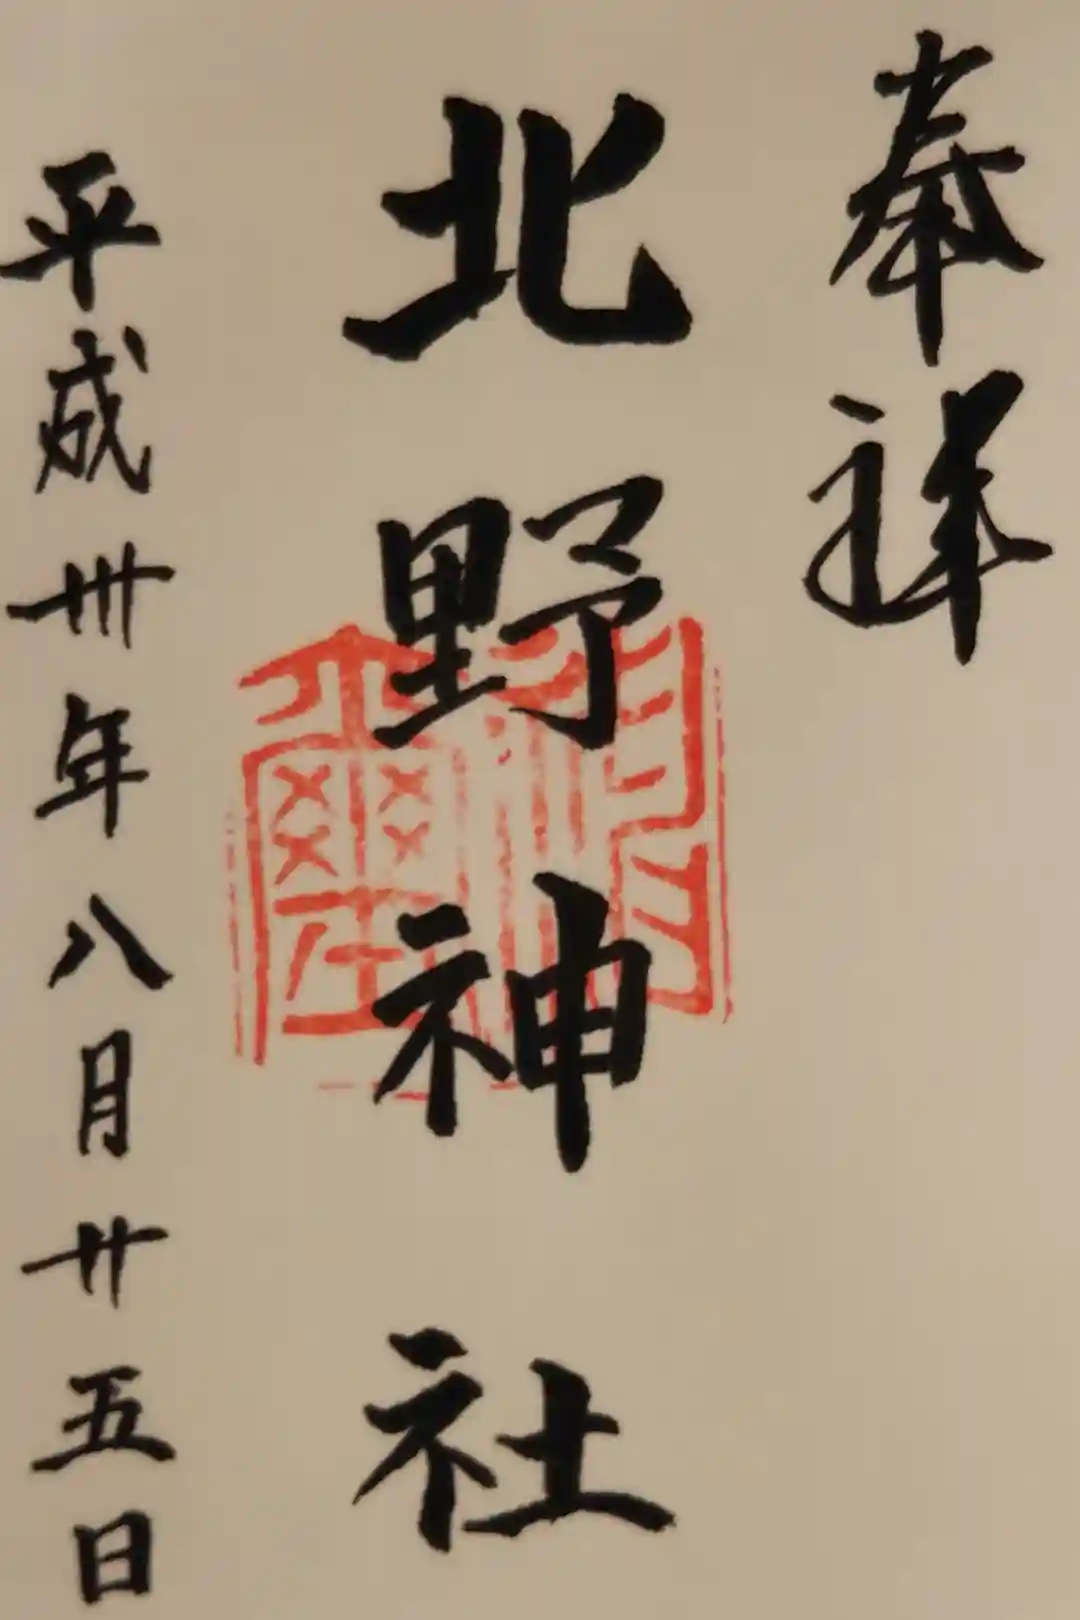 奉拜
北野神社
平成卅年八月廿五日